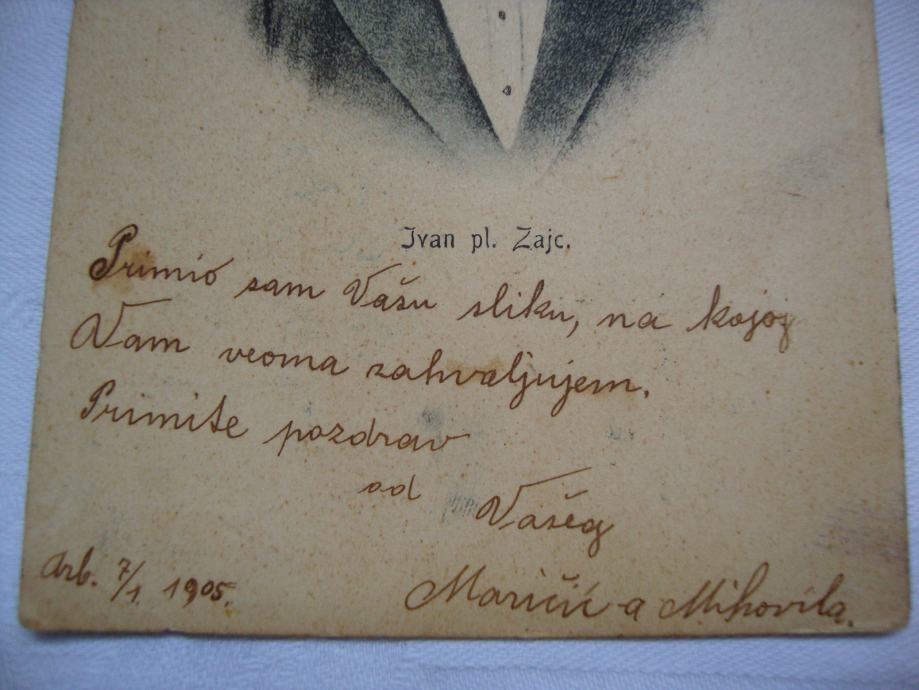 Ivan pl. Zajc.
Primio sam Vašu sliku, na kojoj
Vam veoma zahvaljujem.
Primite pozdrav
od Vašeg
Arb. 7/1. 1905.
Maričić a Mihovila.